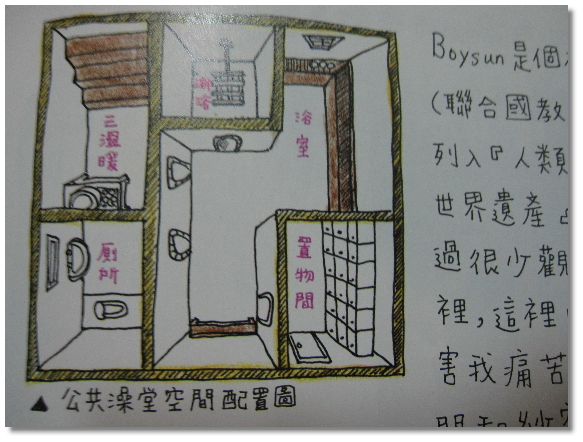 三溫暖
淋浴
浴室
廁所
置物間
▲ 公共澡堂空間配置圖
Boysun是個
(聯合國教
列入『人類
世界遺產
過很少觀
裡,這裡
害我痛苦